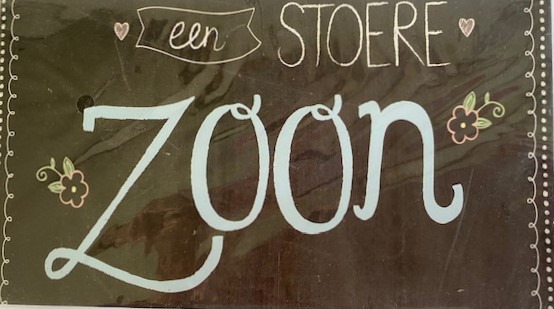 een STOERE
zoon